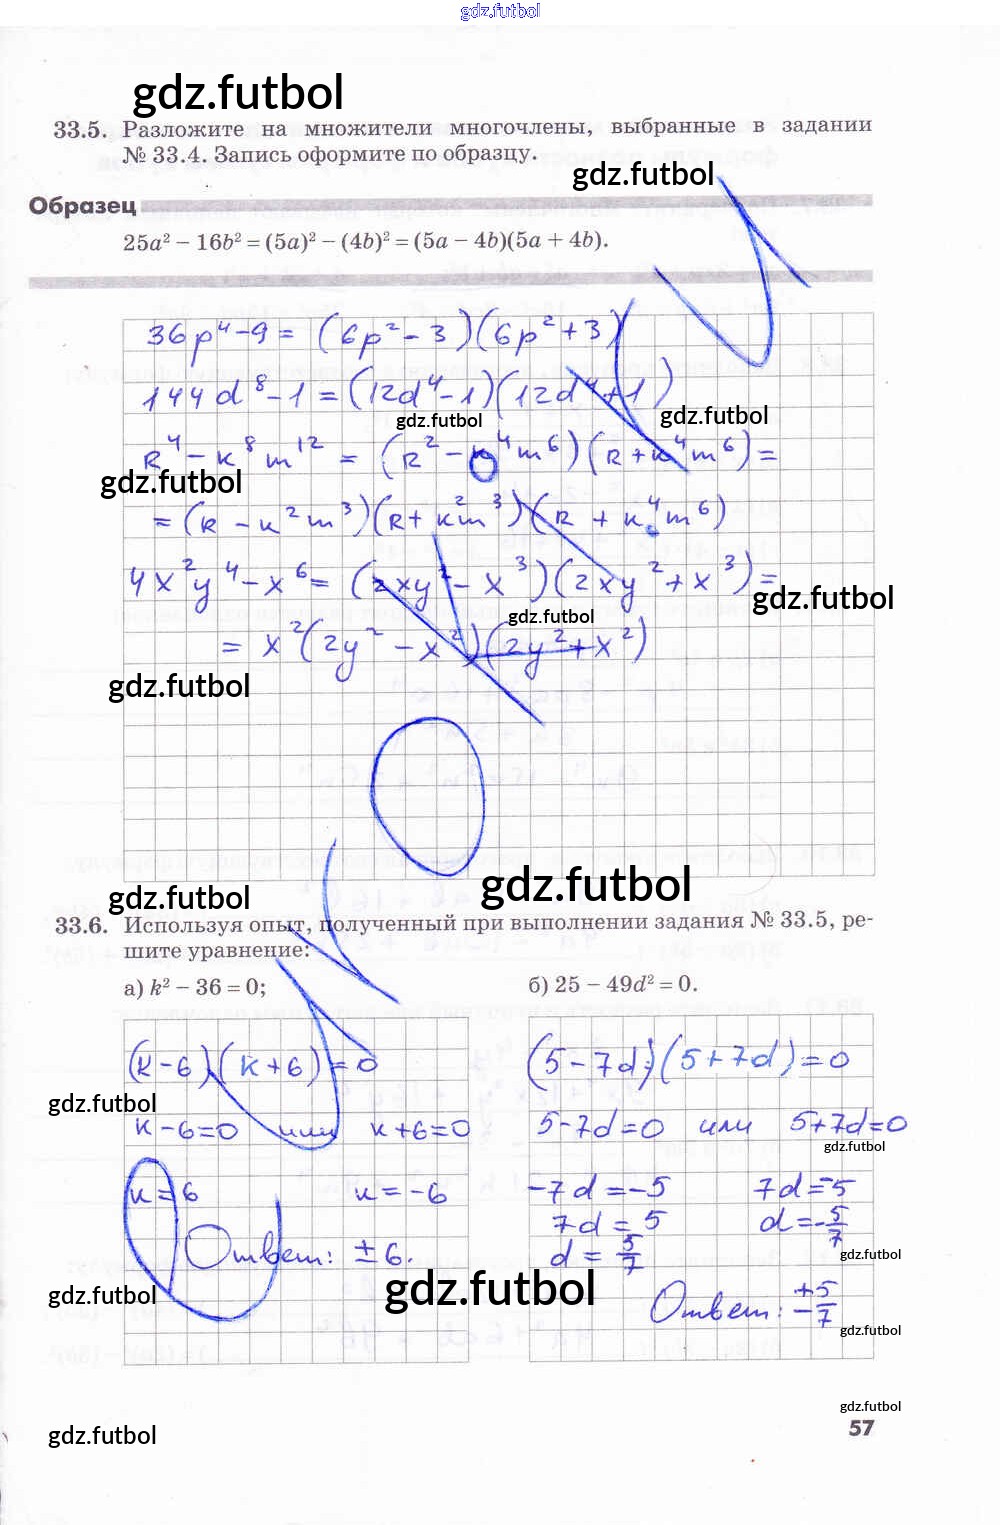 gdz.futbol
gdz.futbol
33.5. Разложите на множители многочлены, выбранные в задании
№ 33.4. Запись оформите по образцу.
gdz.futbol
Образец
25a² − 16b² = (5a)² − (4b)² = (5a − 4b)(5a + 4b).
36p⁴ − 9 = (6p² − 3)(6p² + 3)
144d⁸ − 1 = (12d⁴ − 1)(12d⁴ + 1)
gdz.futbol
gdz.futbol
R⁴ − k⁸m¹² = (R² − k⁴m⁶)(R + k⁴m⁶) =
gdz.futbol
= (R − k²m³)(R + k²m³)(R + k⁴m⁶)
4x²y⁴ − x⁶ = (2xy² − x³)(2xy² + x³) =
gdz.futbol
gdz.futbol
= x²(2y² − x²)(2y² + x²)
gdz.futbol
gdz.futbol
gdz.futbol
33.6. Используя опыт, полученный при выполнении задания № 33.5, ре-
шите уравнение:
а) k² − 36 = 0;
б) 25 − 49d² = 0.
(k − 6)(k + 6) = 0
(5 − 7d)(5 + 7d) = 0
gdz.futbol
k − 6 = 0 или k + 6 = 0
5 − 7d = 0 или 5 + 7d = 0
gdz.futbol
k = 6 k = −6
−7d = −5 7d = −5
7d = 5 d = −5/7
Ответ: ± 6.
d = 5/7
gdz.futbol
gdz.futbol
gdz.futbol
Ответ: ± 5/7
gdz.futbol
gdz.futbol
57
gdz.futbol